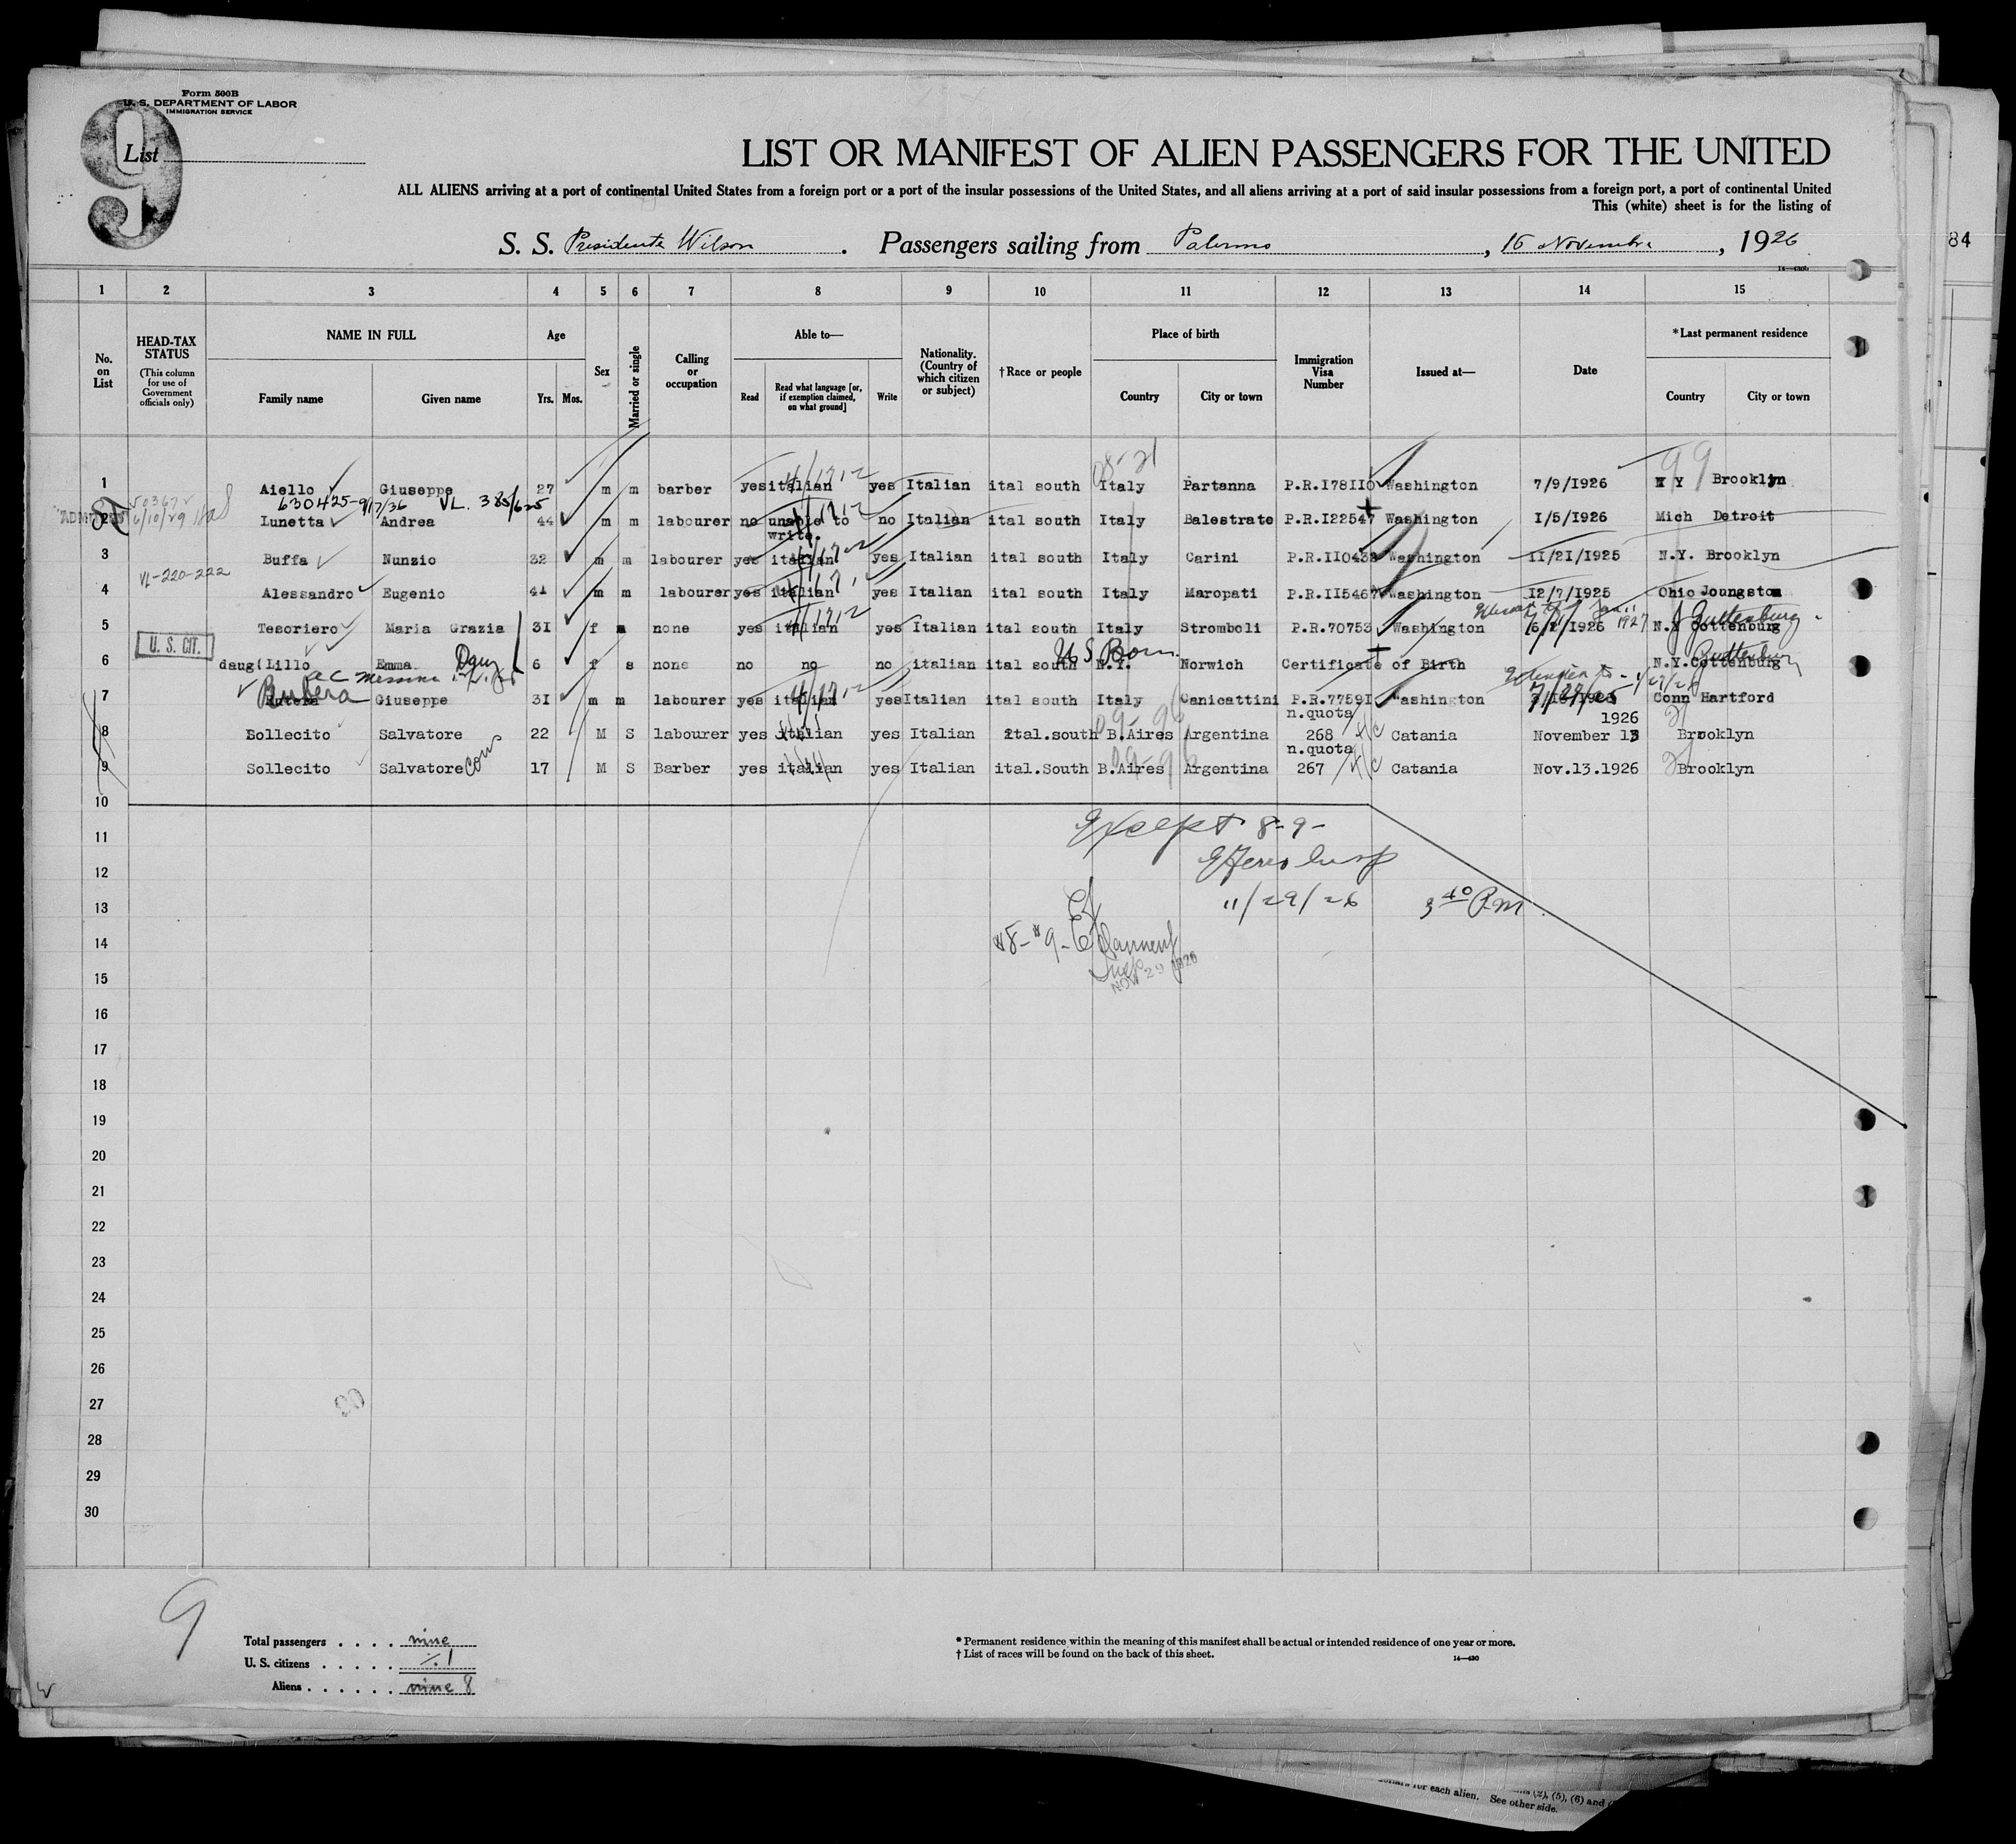 Form 500B
U. S. DEPARTMENT OF LABOR
IMMIGRATION SERVICE
9
List
LIST OR MANIFEST OF ALIEN PASSENGERS FOR THE UNITED
ALL ALIENS arriving at a port of continental United States from a foreign port or a port of the insular possessions of the United States, and all aliens arriving at a port of said insular possessions from a foreign port, a port of continental United
This (white) sheet is for the listing of
S. S. Presidente Wilson. Passengers sailing from Palermo, 16 Novembre, 1926
84
1 2 3 4 5 6 7 8 9 10 11 12 13 14 15
No. on List
HEAD-TAX STATUS (This column for use of Government officials only)
NAME IN FULL
Family name Given name
Age
Yrs. Mos.
Sex
Married or single
Calling or occupation
Able to—
Read Read what language [or, if exemption claimed, on what ground] Write
Nationality. (Country of which citizen or subject)
†Race or people
Place of birth
Country City or town
Immigration Visa Number
Issued at—
Date
*Last permanent residence
Country City or town
08-21 99
1 Aiello Giuseppe 27 m m barber yes italian yes Italian ital south Italy Partanna P.R.I78II0 Washington 7/9/I926 N Y Brooklyn
630425-9/17/36 VL. 385/625
2 Lunetta Andrea 44 m m labourer no unable to write. no Italian ital south Italy Balestrate P.R.I22547 Washington I/5/I926 Mich Detroit
3 Buffa Nunzio 32 m m labourer yes italian yes Italian ital south Italy Carini P.R.II0432 Washington II/2I/I925 N.Y. Brooklyn
VL-220-222
4 Alessandro Eugenio 41 m m labourer yes italian yes Italian ital south Italy Maropati P.R.II5467 Washington I2/7/I925 Ohio Joungston
5 Tesoriero Maria Grazia 3I f m none yes italian yes Italian ital south Italy Stromboli P.R.70753 Washington 1927 N.Y Cottenburg Guttenburg
U. S. CIT.
U S Born
6 daug(Lillo Emma. Daug 6 f s none no no no italian ital south N.Y. Norwich Certificate of Birth N.Y.Cottenburg Guttenburg
7 Butera Giuseppe 3I m m labourer yes italian yes Italian ital south Italy Canicattini P.R.7759I Washington Conn Hartford
8 Sollecito Salvatore 22 M S labourer yes italian yes Italian ital.south B.Aires Argentina n.quota 268 Catania November 13 1926 Brooklyn
9 Sollecito Salvatore cous 17 M S Barber yes italian yes Italian ital.South B.Aires Argentina n.quota 267 Catania Nov.13.1926 Brooklyn
10
11 Except 8-9-
12
13 11/29/26 3 40 P.M
14 #8-#9-
15 NOV 29 1926
16
17
18
19
20
21
22
23
24
25
26
27
28
29
30
9
Total passengers . . . . nine
U. S. citizens . . . . . 1
Aliens . . . . . . nine 8
* Permanent residence within the meaning of this manifest shall be actual or intended residence of one year or more.
† List of races will be found on the back of this sheet.
14—430
for each alien. See other side.
(2), (5), (6) and